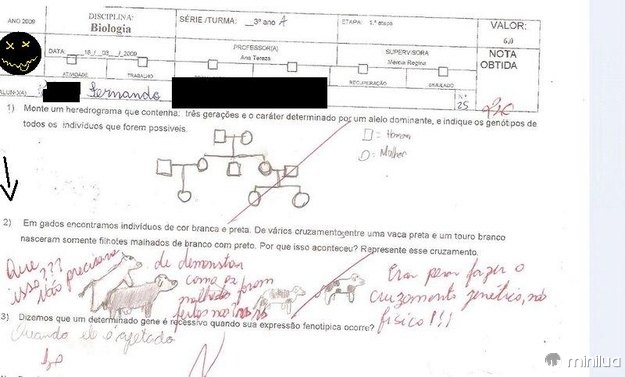 ANO 2009 DISCIPLINA: Biologia SÉRIE /TURMA: _3º ano A ETAPA: 1.ª etapa VALOR: 6,0
DATA: 18 / 03 / 2009 PROFESSOR(A) Ana Tereza SUPERVISORA Márcia Regina NOTA OBTIDA
ATIVIDADE TRABALHO RECUPERAÇÃO
ALUNO(A): Fernando N.º 25
1) Monte um heredrograma que contenha: três gerações e o caráter determinado por um alelo dominante, e indique os genótipos de
todos os indivíduos que forem possíveis.
□ = Homem
O = Mulher
2) Em gados encontramos indivíduos de cor branca e preta. De vários cruzamento entre uma vaca preta e um touro branco
nasceram somente filhotes malhados de branco com preto. Por que isso aconteceu? Represente esse cruzamento.
Que isso??? Não precisava
de demonstrar
como os
malhados foram
feitos
Era para fazer o
cruzamento genético, não
físico!!!
3) Dizemos que um determinado gene é recessivo quando sua expressão fenotípica ocorre?
Quando ele é rejeitado
minilua